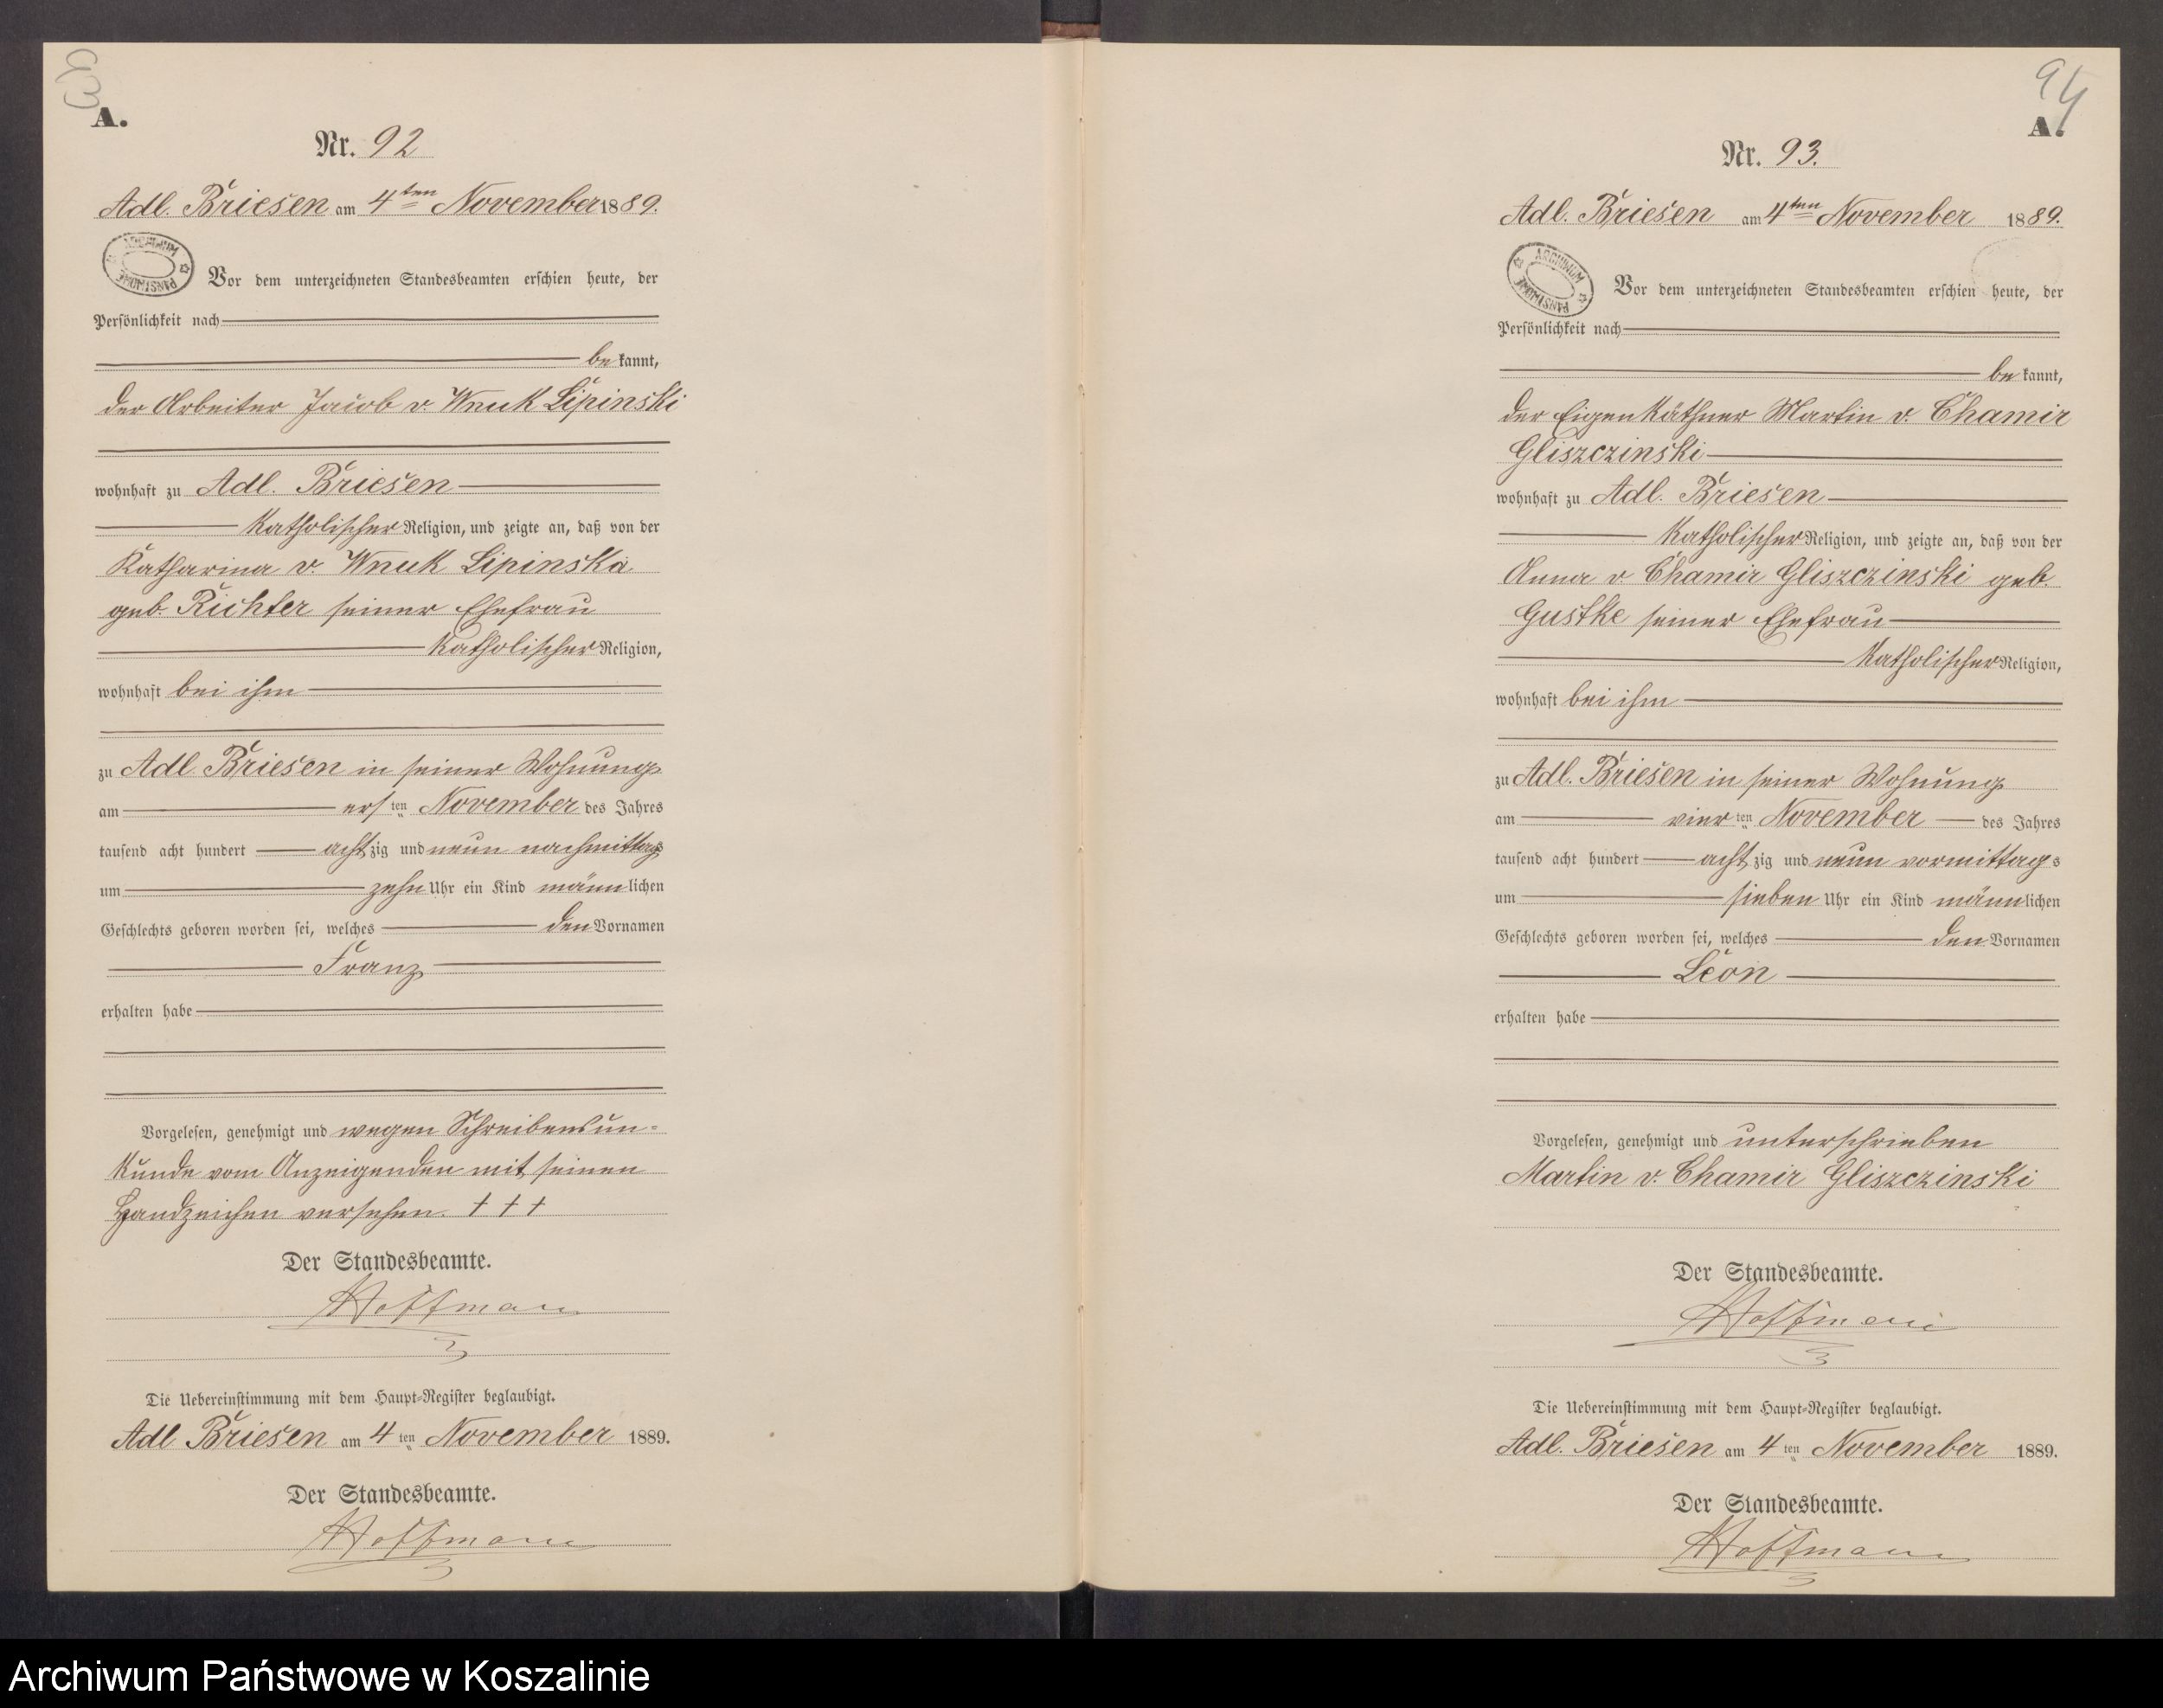 A.
Nr. 92
Adl. Briesen am 4ten November 1889.
ARCHIWUM PAŃSTWOWE
Vor dem unterzeichneten Standesbeamten erschien heute, der
Persönlichkeit nach
bekannt,
der Arbeiter Jacob v. Wnuk Lipinski
wohnhaft zu Adl. Briesen
Katholischer Religion, und zeigte an, daß von der
Katharina v. Wnuk Lipinska
geb. Richter seiner Ehefrau
Katholischer Religion,
wohnhaft bei ihm
zu Adl Briesen in seiner Wohnung
am ersten November des Jahres
tausend acht hundert achtzig und neun nachmittags
um zehn Uhr ein Kind männlichen
Geschlechts geboren worden sei, welches den Vornamen
Franz
erhalten habe
Vorgelesen, genehmigt und wegen Schreibensun-
kunde vom Anzeigenden mit seinen
Handzeichen versehen. + + +
Der Standesbeamte.
Hoffmann
Die Uebereinstimmung mit dem Haupt-Register beglaubigt.
Adl Briesen am 4ten November 1889.
Der Standesbeamte.
Hoffmann
94
A.
Nr. 93.
Adl. Briesen am 4ten November 1889.
ARCHIWUM PAŃSTWOWE
Vor dem unterzeichneten Standesbeamten erschien heute, der
Persönlichkeit nach
bekannt,
der Eigenkäthner Martin v. Chamir
Gliszczinski
wohnhaft zu Adl. Briesen
Katholischer Religion, und zeigte an, daß von der
Anna v Chamir Gliszczinski geb.
Gustke seiner Ehefrau
Katholischer Religion,
wohnhaft bei ihm
zu Adl. Briesen in seiner Wohnung
am vierten November des Jahres
tausend acht hundert achtzig und neun vormittags
um sieben Uhr ein Kind männlichen
Geschlechts geboren worden sei, welches den Vornamen
Leon
erhalten habe
Vorgelesen, genehmigt und unterschrieben
Martin v. Chamir Gliszczinski
Der Standesbeamte.
Hoffmann
Die Uebereinstimmung mit dem Haupt-Register beglaubigt.
Adl. Briesen am 4ten November 1889.
Der Standesbeamte.
Hoffmann
Archiwum Państwowe w Koszalinie